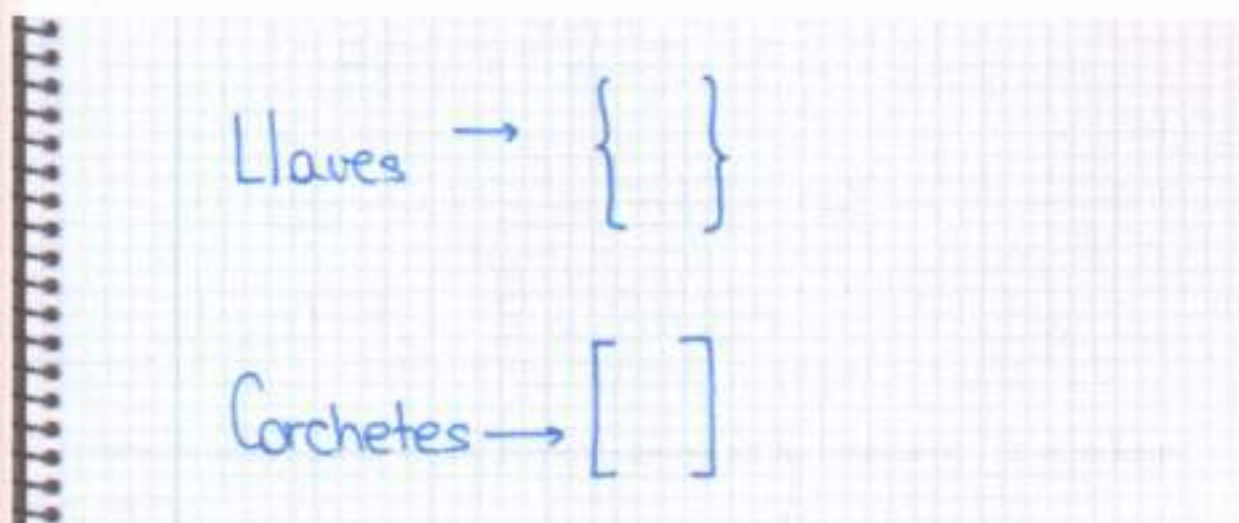 Llaves → { }
Corchetes → [ ]